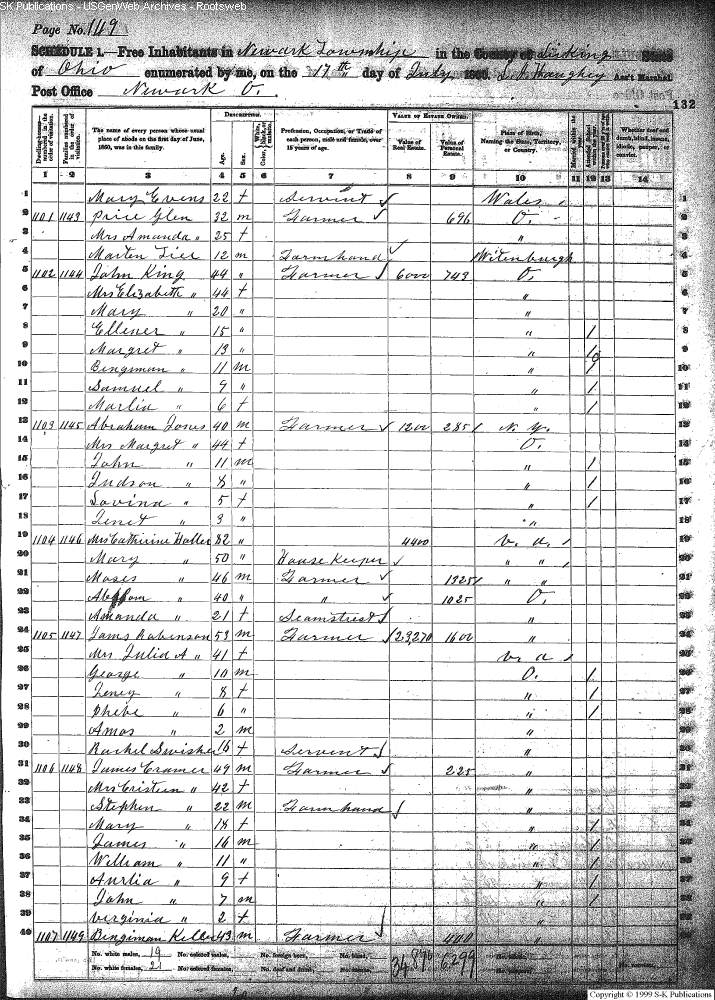 SK Publications - USGenWeb Archives - Rootsweb
Page No. 149
SCHEDULE 1.—Free Inhabitants in Newark Township in the County of Licking State
of Ohio enumerated by me, on the 17th day of July 1860. Ass't Marshal
Post Office Newark O.
132
DESCRIPTION. VALUE OF ESTATE OWNED.
Dwelling-houses numbered in the order of visitation. Families numbered in the order of visitation. The name of every person whose usual place of abode on the first day of June, 1860, was in this family. Age. Sex. Profession, Occupation, or Trade of each person, male and female, over 15 years of age. Value of Real Estate. Value of Personal Estate. Place of Birth, Naming the State, Territory, or Country. Whether deaf and dumb, blind, insane, idiotic, pauper, or convict.
1 2 3 4 5 6 7 8 9 10 11 12 13 14
1 Mary Evens 22 f Servent Wales 1
2 1101 1143 Price Glen 32 m Farmer 696 O. 2
3 Mrs Amanda " 25 f " 3
4 Marten Tier 12 m Farmhand Witenburgh 4
5 1102 1144 John King 44 " Farmer 6000 743 O. 5
6 Mrs Elizabeth " 44 f " 6
7 Mary " 20 " " 7
8 Ellener " 15 " " 1 8
9 Margret " 13 " " 1 9
10 Bengiman " 11 m " 1 10
11 Samuel " 9 " " 1 11
12 Marlia " 6 f " 1 12
13 1103 1145 Abraham Jones 40 m Farmer 1200 285 N. Y. 13
14 Mrs Margret " 44 f O. 14
15 John " 11 m " 1 15
16 Judson " 8 " " 1 16
17 Lovina " 5 f " 1 17
18 Jenet " 3 " " 18
19 1104 1146 Mrs Catherine Holler 82 " 4400 Va. 19
20 Mary " 50 " House Keeper " " 20
21 Moses " 46 m Farmer 1325 " " 21
22 " 40 " " 1025 O. 22
23 Amanda " 21 f Seamstrest " 23
24 1105 1147 Jams Robinson 53 m Farmer 23,270 1600 " 24
25 Mrs Julia A " 41 f Va. 25
26 George " 10 m O. 1 26
27 Jeney " 8 f " 1 27
28 Phebe " 6 " " 1 28
29 Amos " 2 m " 29
30 Rachel Swisher 16 f Servent " 30
31 1106 1148 James Cramer 49 m Farmer 225 " 31
32 Mrs Cristeen " 42 f " 32
33 Stephen " 22 m Farmhand " 33
34 Mary " 18 f " 1 34
35 James " 16 m " 1 35
36 William " 11 " " 1 36
37 Aurlia " 9 f " 1 37
38 John " 7 m " 1 38
39 Verginia " 2 f " 39
40 1107 1149 Bengiman Keller 43 m Farmer 400 " 40
No. white males, 19 No. colored males, No. foreign born, No. blind, 34,890 6,299
No. white females, 21 No. colored females, No. deaf and dumb, No. insane,
Copyright © 1999 S-K Publications